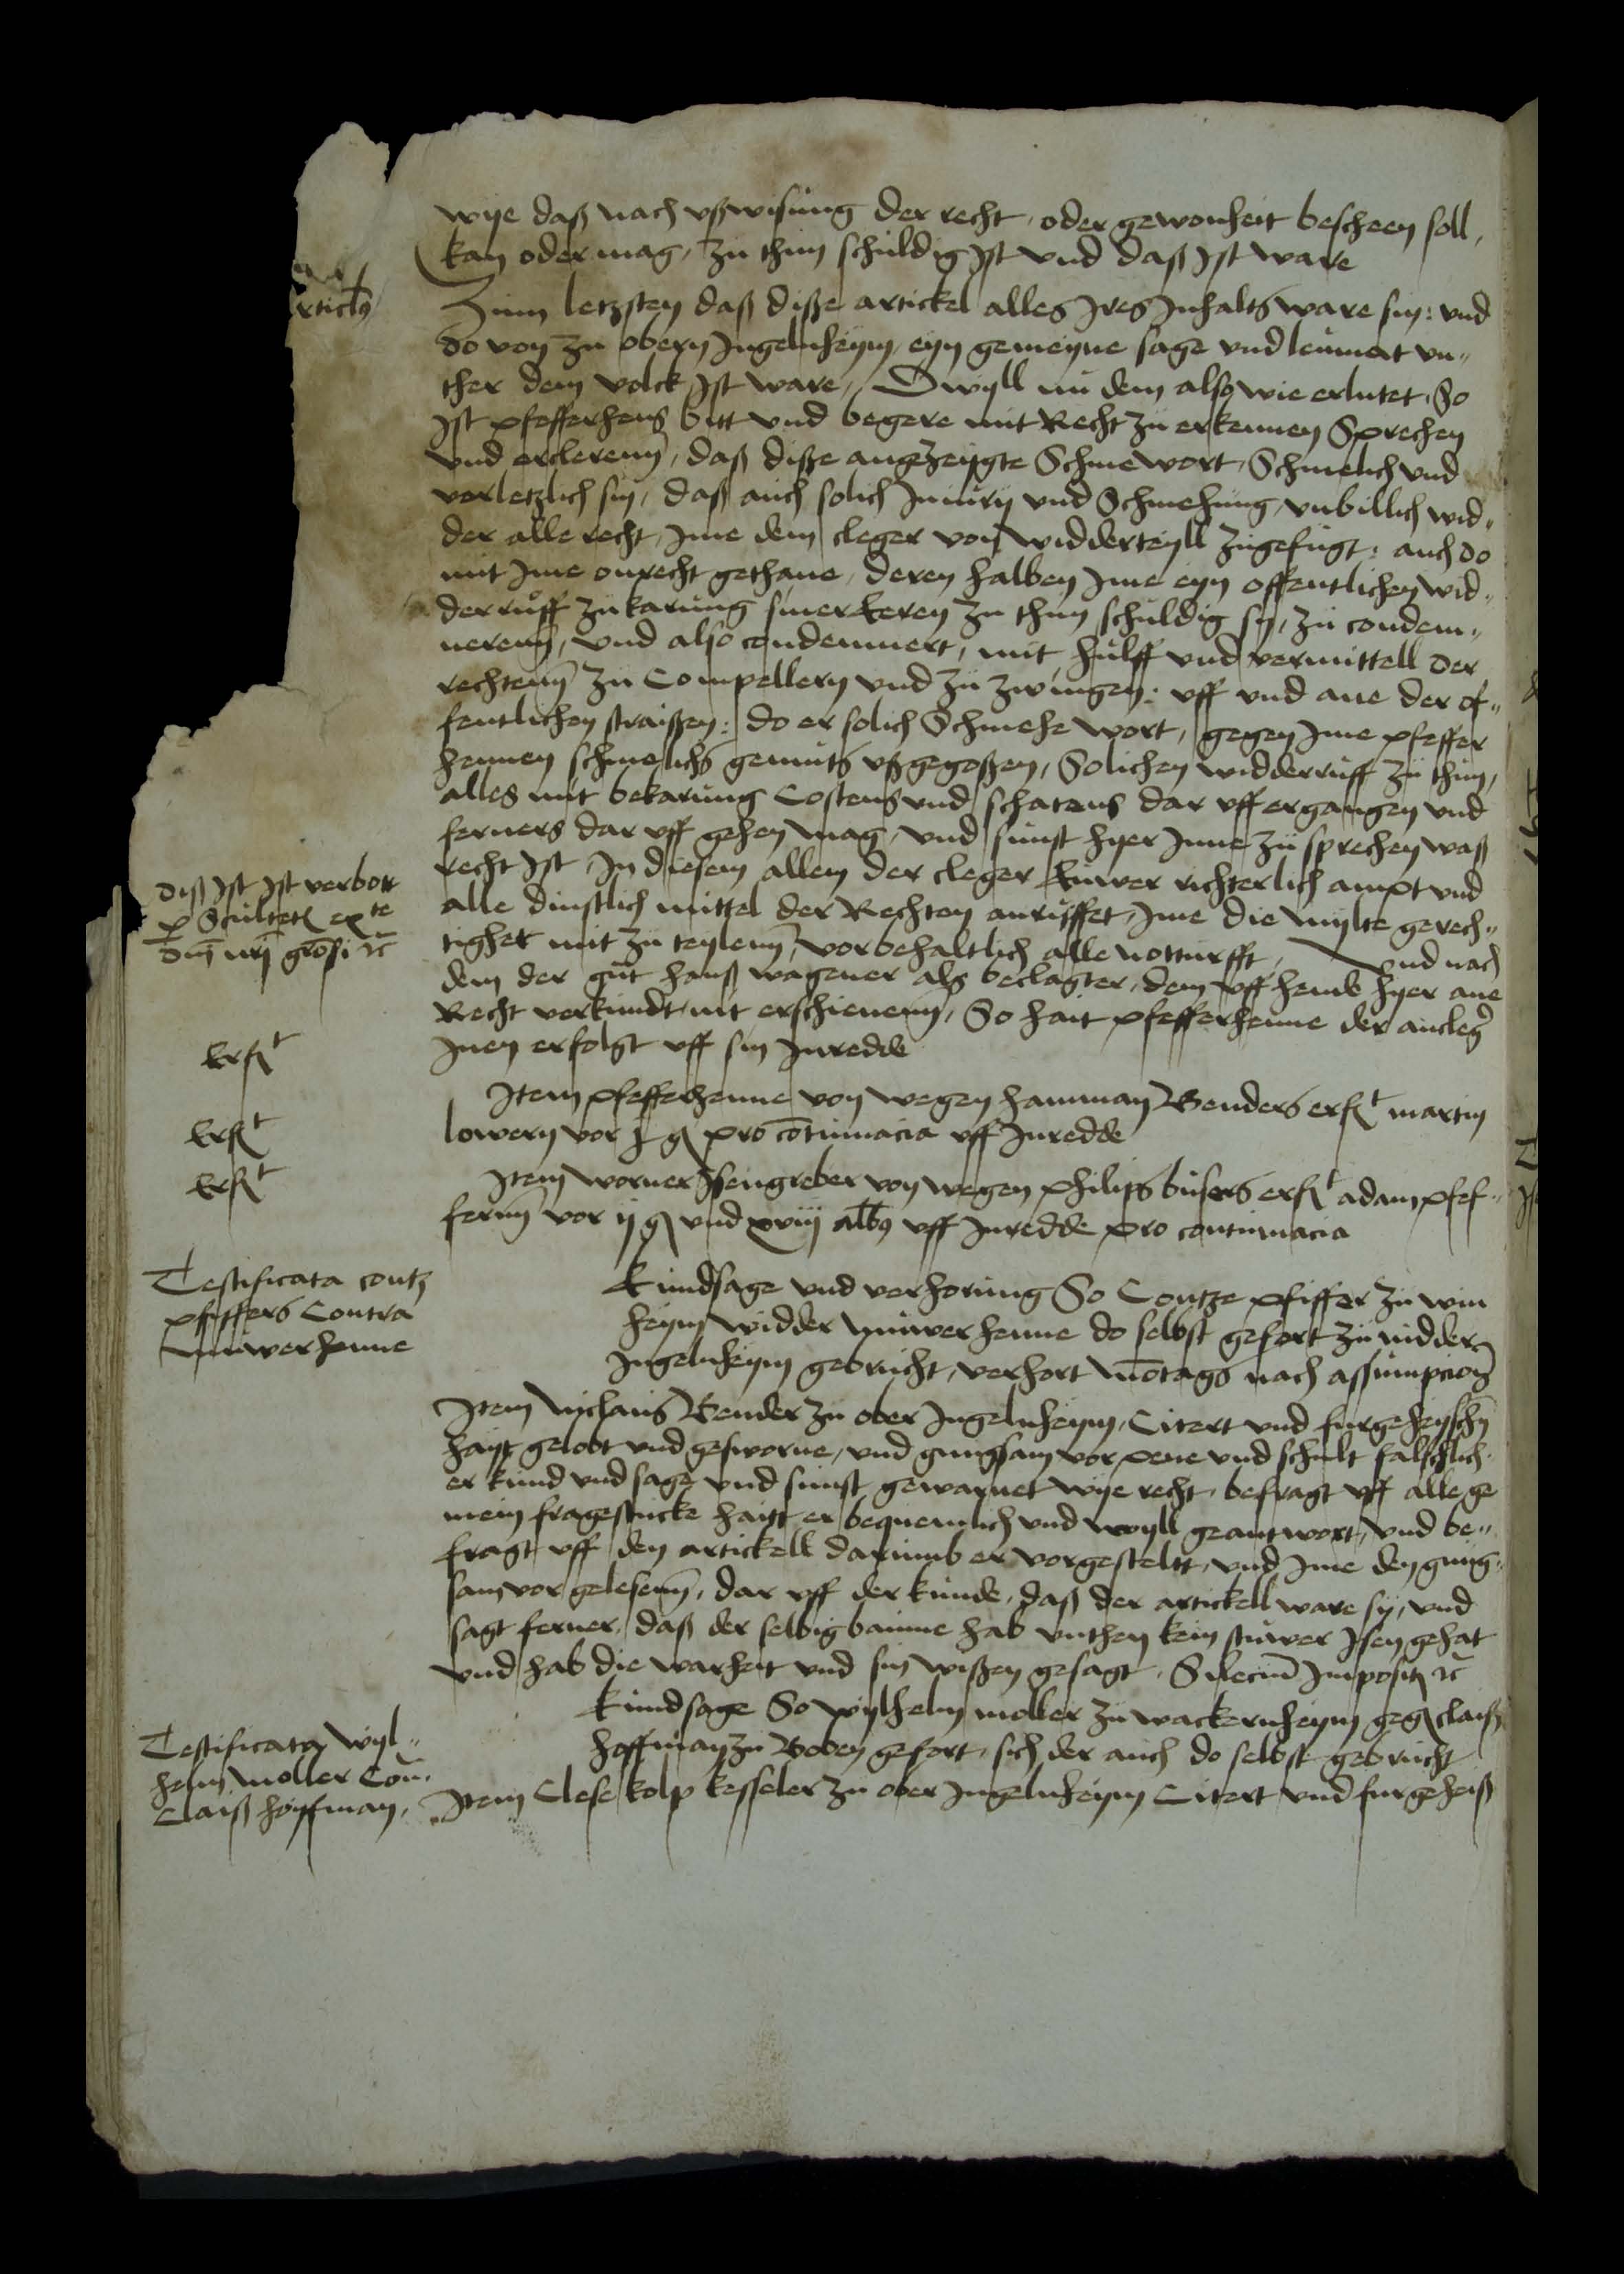 wye daß nach ußwisung der recht, oder gewonheit bescheen soll,
kan oder mag, zu thun schuldig ist und daß ist ware
rticlus
Zum letzsten daß disze artickel alles ires inhalts ware sin: und
do von zu obern Ingelnheym eyn gemeyne sage und leumat un„
ther dem volck ist ware, Dwyll nu dem also wie erlutet, So
ist pfefferhens bitt und begere mit Recht zu erkennen Sprechen
und erclerenn, daß disze angezeygte Schmewort, Schmelich und
verletzlich sin, daß auch solich Iniury und Schmehung, unbillich wid„
der alle recht, Ime dem cleger von widderteyll zugefugt: auch do
mit Ime onrecht gethane, deren halben Ime eyn offentlichen wid„
derruff zu karung siner Eeren zu thun schuldig sy, zu condem„
nerenn, und also condemnert, mit hulff und vermittell der
rechtenn zu Compellern und zu zwingen: uff und ane der of„
fentlichen straißen: do er solich Schmehe wort, gegen Ime pfeffer
hennen schmelichs gemuts ußgegoßen, Solichen widderruff zu thun,
alles mit bekarung Costens und schatens dar uff ergangen und
ferners dar uff gehen mag, und sunst hyer Inne zu sprechen waß
recht ist, In diesem allem der cleger Euwer richterlich ampt und
diß ist ist verbott
p Scultet ex te
dni nri grosi ꝛc
alle dinstlich mittel der Rechten anruffet, Ime die mylte gerech„
tighet mit zu teylenn, vorbehaltlich alle notturfft, Und nach
dem der gut hanß wagener als beclagter, dem uff heude hyer ane
Recht verkundt, nit erschienenn, So hait pfefferhenne der ancleger
Inen erfolgt uff sin Inredde
Erft
Item pfefferhenne von wegen hamman Benders erft martin
lowern vor j g pro contumacia uff Inredde
Erft
Item worner Isengreber von wegen philips busers erft adam pfef„
fernn vor ij g und xviij albus uff Inredde pro contumacia
Erft
Testificata contz
pfiffers Contra
nuwerhenne
Kundsage und verhorung So Contze pfiffer zu win
heym widder nuwerhenne do selbst gefort zu nidder
Ingelnheym gebrucht, verhort montags nach assumpcionis
Item Niclaus Bender zu ober Ingelnheym, Citert und furgeheyschen
hayt gelobt und gesworne, und gnugsam vor pene und schult falschlich
er kund und sage und sunst gewarnet wye recht, befragt uff alle ge
mein fragestucke hayt er bequemlich und woyll geantwort, und be„
fragt uff den artickell darumb er vorgesteltt, und Ime den gnug„
sam vor gelesenn, dar uff der kunde, daß der artickell ware sy, und
sagt ferner, daß der selbig baume hab unthen kein stuwer Isen gehat
und hab die warheit und sin wißen gesagt, Silencium Imposit ꝛc
Testificata wyl„
helm Moller Con.
Claiß hoffman,
Kundsage So wylhelm moller zu wackernheym gegen claiß
hoffman zu Boben gefort, sich der auch do selbst gebrucht
Item Clese kolp kesseler zu ober Ingelnheym Citert und furgeheiß